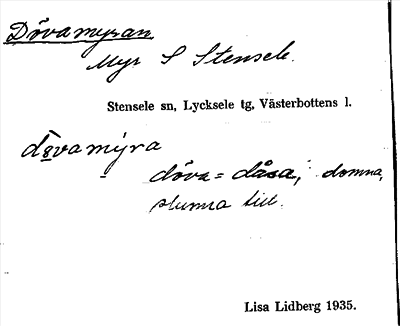 Dövamyran
Myr S Stensele.
Stensele sn, Lycksele tg, Västerbottens l.
dövamýra
döva = dåsa, domna,
slumra till.
Lisa Lidberg 1935.